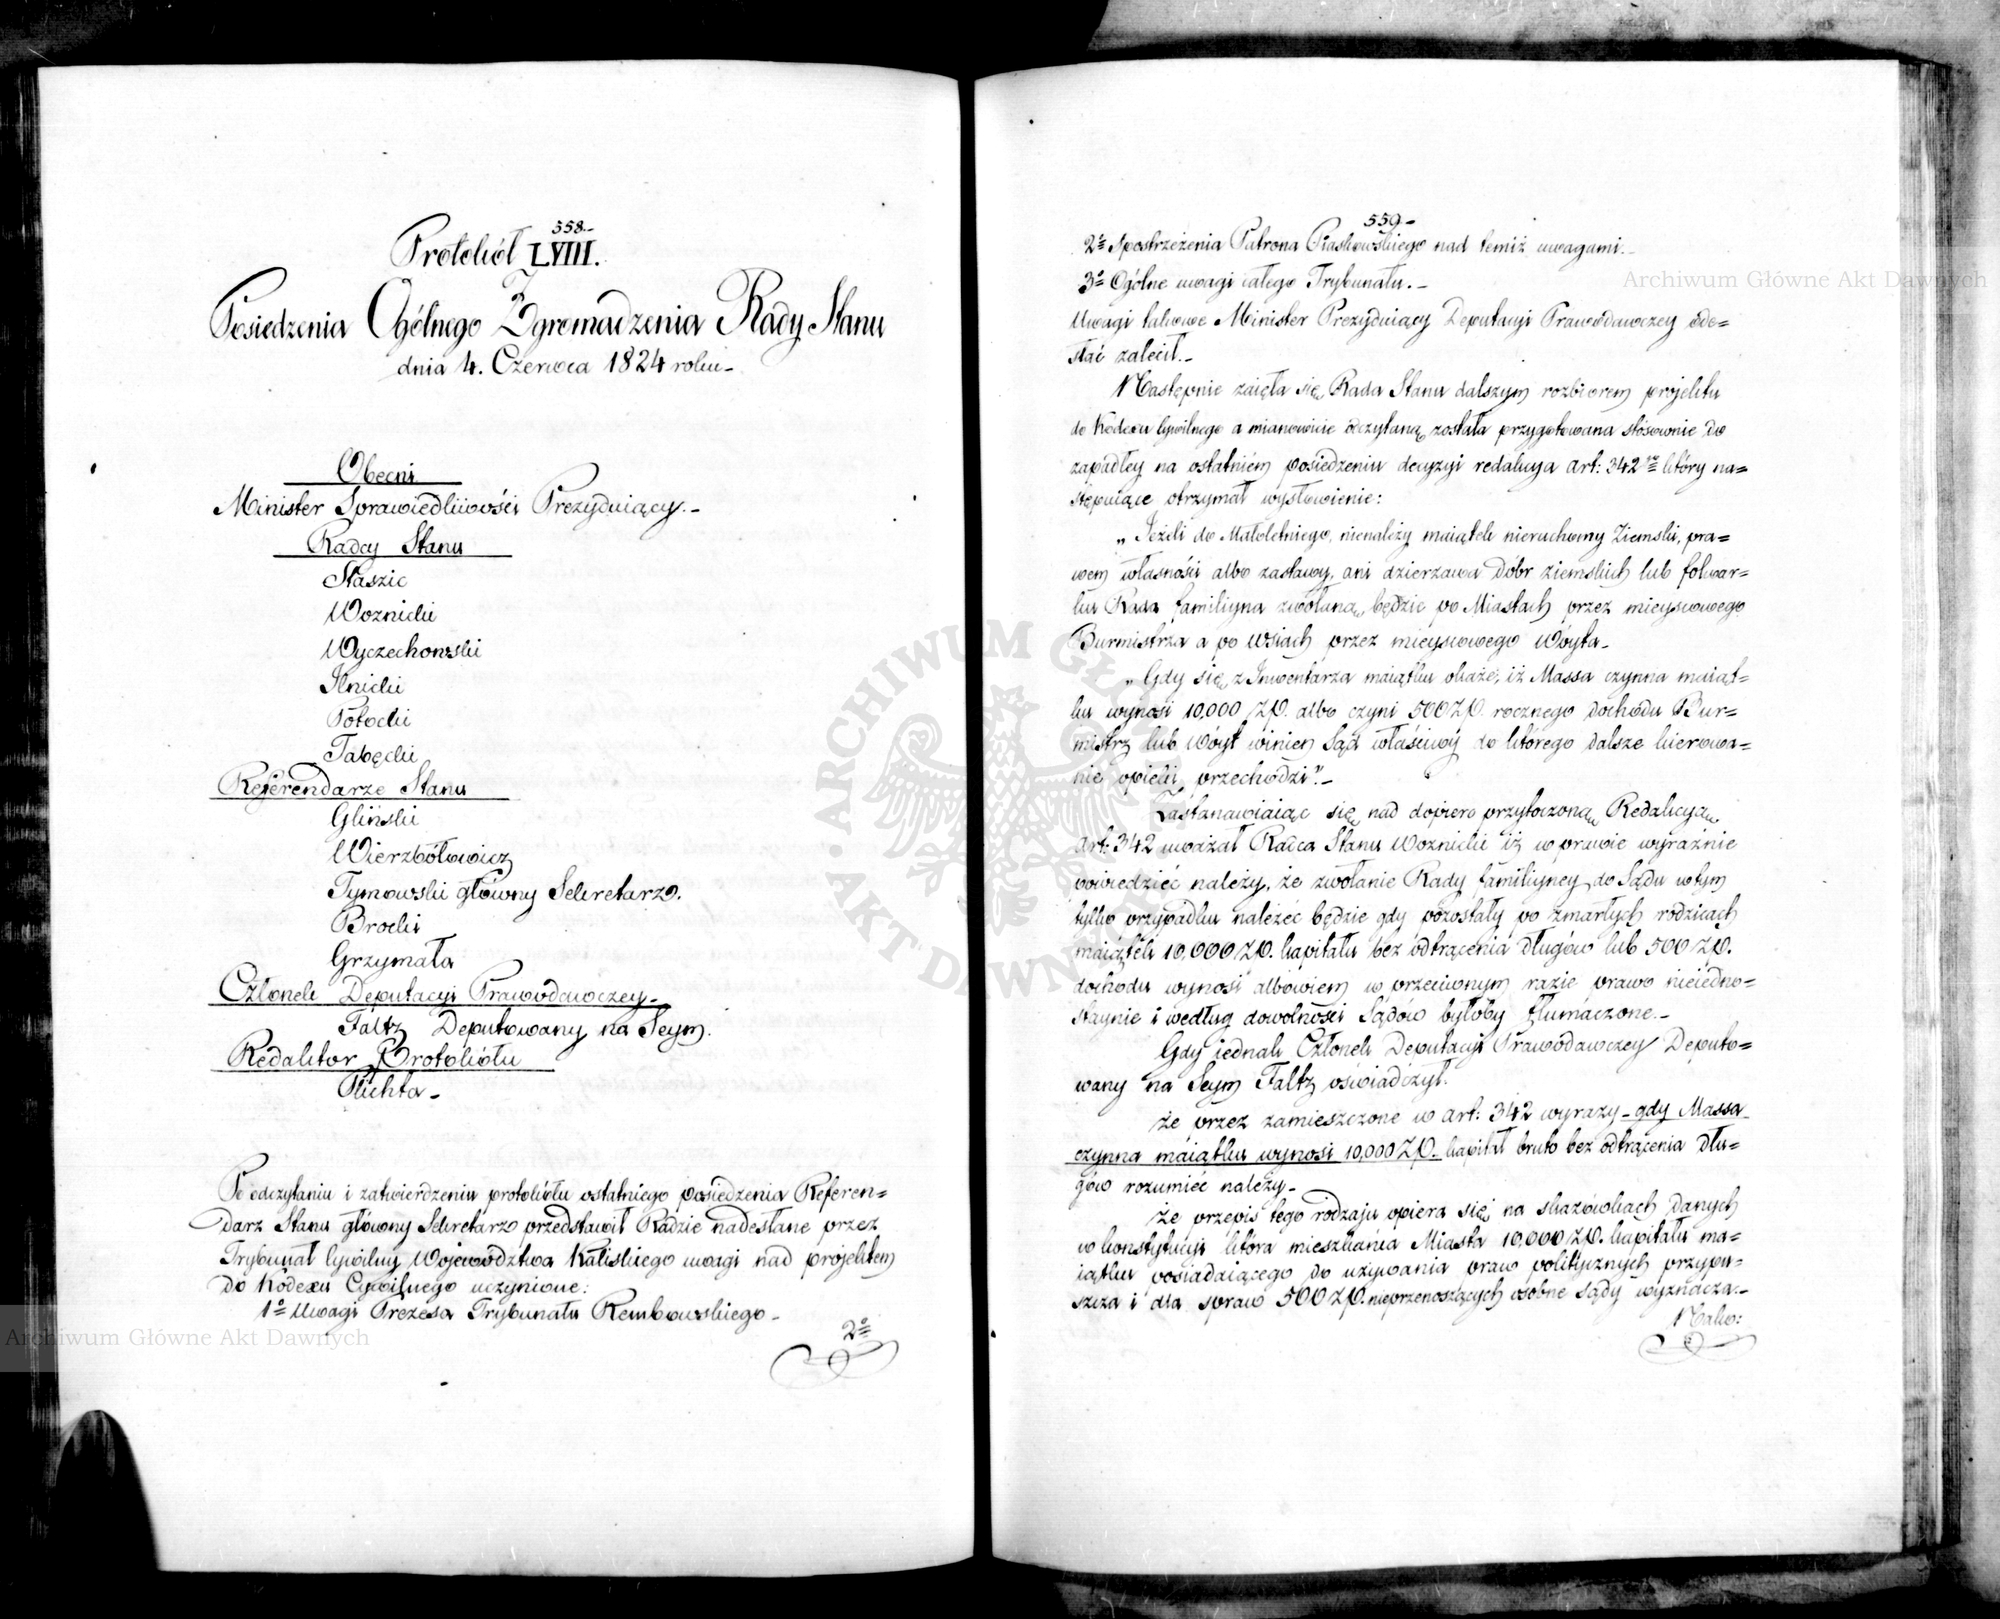 358.
Protokół LVIII.
Posiedzenia Ogólnego Zgromadzenia Rady Stanu
dnia 4. Czerwca 1824 roku
Obecni
Minister Sprawiedliwości Prezyduiący.
Radcy Stanu
Staszic
Woznicki
Wyczechowski
Ilnicki
Potocki
Tabęcki
Referendarze Stanu
Gliński
Wierzbołowicz
Tymowski główny Sekretarz.
Brocki
Grzymała
Członek Deputacyi Prawodawczey
Faltz Deputowany na Seym.
Redaktor Protokółu
Plichta
Po odczytaniu i zatwierdzeniu protokółu ostatniego posiedzenia Referen=
darz Stanu główny Sekretarz przedstawił Radzie nadesłane przez
Trybunał Cywilny Województwa Kaliskiego uwagi nad projektem
do Kodexu Cywilnego uczynione:
1º Uwagi Prezesa Trybunału Rembowskiego
2º
559
2º Spostrzeżenia Patrona Piaskowskiego nad temiż uwagami.
3º Ogólne uwagi całego Trybunału.
Uwagi takowe Minister Prezyduiący Deputacyi Prawodawczey ode=
słać zalecił.
Następnie zaięła się Rada Stanu dalszym rozbiorem projektu
do Kodexu Cywilnego a mianowicie odczytaną została przygotowana stósownie do
zapadłey na ostatniém posiedzeniu decyzyi redakcya art: 342go który na=
stępuiące otrzymał wysłowienie:
„Jeżeli do Małoletniego, nienależy maiątek nieruchomy Ziemski, pra=
wem własności albo zastawy, ani dzierzawa dóbr ziemskich lub folwar=
ku Rada familiyna zwołaną będzie po Miastach przez mieyscowego
Burmistrza a po wsiach przez mieyscowego Wóyta
„Gdy się z Inwentarza maiątku okaże, iż Massa czynna maiąt=
ku wynosi 10,000 Zp. albo czyni 500 Zp. rocznego dochodu Bur=
mistrz lub Wóyt winien Sąd właściwy do którego dalsze kierowa=
nie opieki przechodzi”.
Zastanawiaiąc się nad dopiero przytoczoną Redakcyą
art: 342 uważał Radca Stanu Woznicki iż w prawie wyraźnie
powiedzieć należy, że zwołanie Rady familiyney do Sądu w tym
tylko przypadku należéć będzie gdy pozostały po zmarłych rodzicach
maiątek 10,000 Zp. kapitału bez odtrącenia długów lub 500 Zp.
dochodu wynosi albowiem w przeciwnym razie prawo nieiedno=
staynie i według dowolności Sądów byłoby tłumaczone.
Gdy iednak Członek Deputacyi Prawodawczey Deputo=
wany na Seym Faltz oświadczył.
że przez zamieszczone w art: 342 wyrazy gdy Massa
czynna maiątku wynosi 10,000 Zp. kapitał bruto bez odtrącenia dłu=
gów rozumiéć należy
że przepis tego rodzaju opiera się na skazówkach danych
w konstytucyi która mieszkańca Miasta 10,000 Zp. kapitału ma=
iątku posiadaiącego do używania praw politycznych przypu=
szcza i dla spraw 500 Zp. nieprzenoszących osobne Sądy wyznacza.
Nako:
Archiwum Główne Akt Dawnych
Archiwum Główne Akt Dawnych
ARCHIWUM GŁÓWNE AKT DAWNYCH